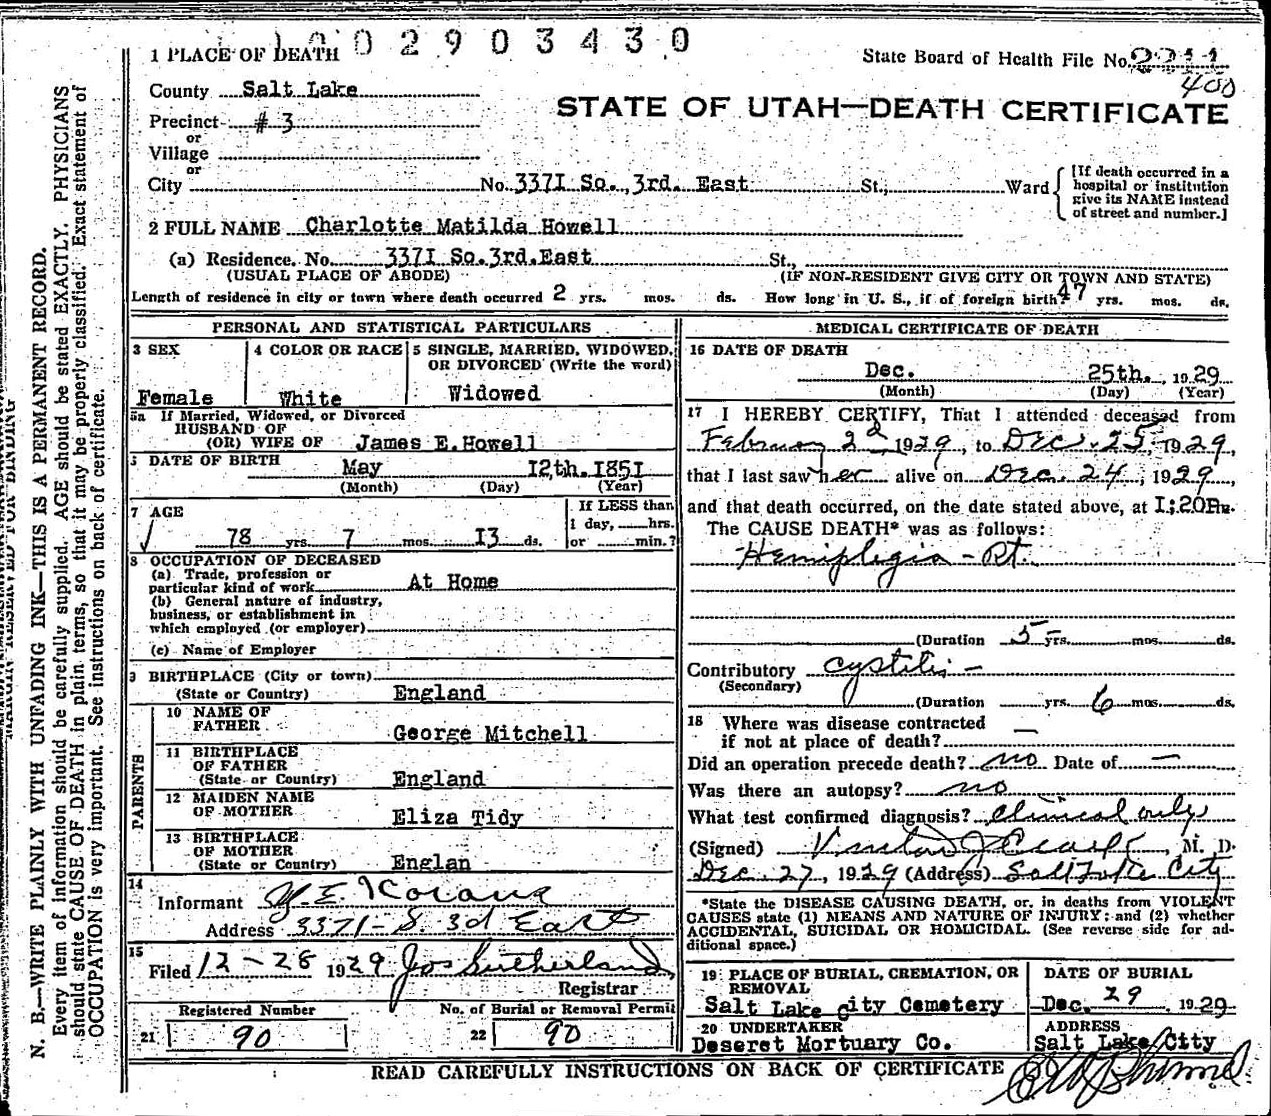 1 PLACE OF DEATH 002903430
State Board of Health File No. 2211
400
County Salt Lake
STATE OF UTAH—DEATH CERTIFICATE
Precinct # 3
or
Village
or
City No. 337I So. 3rd. East St., Ward
[If death occurred in a hospital or institution give its NAME instead of street and number.]
2 FULL NAME Charlotte Matilda Howell
(a) Residence. No. 337I So.3rd.East St.,
(USUAL PLACE OF ABODE) (IF NON-RESIDENT GIVE CITY OR TOWN AND STATE)
Length of residence in city or town where death occurred 2 yrs. mos. ds. How long in U. S., if of foreign birth 47 yrs. mos. ds.
PERSONAL AND STATISTICAL PARTICULARS
3 SEX
Female
4 COLOR OR RACE
White
5 SINGLE, MARRIED, WIDOWED, OR DIVORCED (Write the word)
Widowed
5a If Married, Widowed, or Divorced
HUSBAND OF
(OR) WIFE OF James E.Howell
DATE OF BIRTH May 12th. I85I
(Month) (Day) (Year)
7 AGE
78 yrs. 7 mos. I3 ds.
If LESS than
1 day, hrs.
or min.?
8 OCCUPATION OF DECEASED
(a) Trade, profession or
particular kind of work At Home
(b) General nature of industry,
business, or establishment in
which employed (or employer)
(c) Name of Employer
9 BIRTHPLACE (City or town)
(State or Country) England
PARENTS
10 NAME OF
FATHER George Mitchell
11 BIRTHPLACE
OF FATHER
(State or Country) England
12 MAIDEN NAME
OF MOTHER Eliza Tidy
13 BIRTHPLACE
OF MOTHER
(State or Country) Englan
14
Informant
Address 3371 - S. 3d East
15
Filed 12-28 1929 Jos Sutherland
Registrar
Registered Number
21 90
No. of Burial or Removal Permit
22 90
MEDICAL CERTIFICATE OF DEATH
16 DATE OF DEATH
Dec. 25th. , 1929
(Month) (Day) (Year)
17 I HEREBY CERTIFY, That I attended deceased from
February 2d 1929, to Dec. 25 1929,
that I last saw her alive on Dec. 24, 1929,
and that death occurred, on the date stated above, at I:20Pm.
The CAUSE DEATH* was as follows:
Hemiplegia - Rt.
(Duration 5 yrs. mos. ds.
Contributory cystitis -
(Secondary)
(Duration yrs. 6 mos. ds.
18 Where was disease contracted
if not at place of death? —
Did an operation precede death? no Date of —
Was there an autopsy? no
What test confirmed diagnosis? clinical only
(Signed) M. D.
Dec. 27, 1929 (Address) Salt Lake City
*State the DISEASE CAUSING DEATH, or, in deaths from VIOLENT
CAUSES state (1) MEANS AND NATURE OF INJURY; and (2) whether
ACCIDENTAL, SUICIDAL OR HOMICIDAL. (See reverse side for ad-
ditional space.)
19 PLACE OF BURIAL, CREMATION, OR
REMOVAL
Salt Lake City Cemetery
DATE OF BURIAL
Dec. 29, 1929
20 UNDERTAKER
Deseret Mortuary Co.
ADDRESS
Salt Lake City
READ CAREFULLY INSTRUCTIONS ON BACK OF CERTIFICATE
MARGIN RESERVED FOR BINDING
N. B.—WRITE PLAINLY WITH UNFADING INK—THIS IS A PERMANENT RECORD.
Every item of information should be carefully supplied. AGE should be stated EXACTLY. PHYSICIANS
should state CAUSE OF DEATH in plain terms, so that it may be properly classified. Exact statement of
OCCUPATION is very important. See instructions on back of certificate.